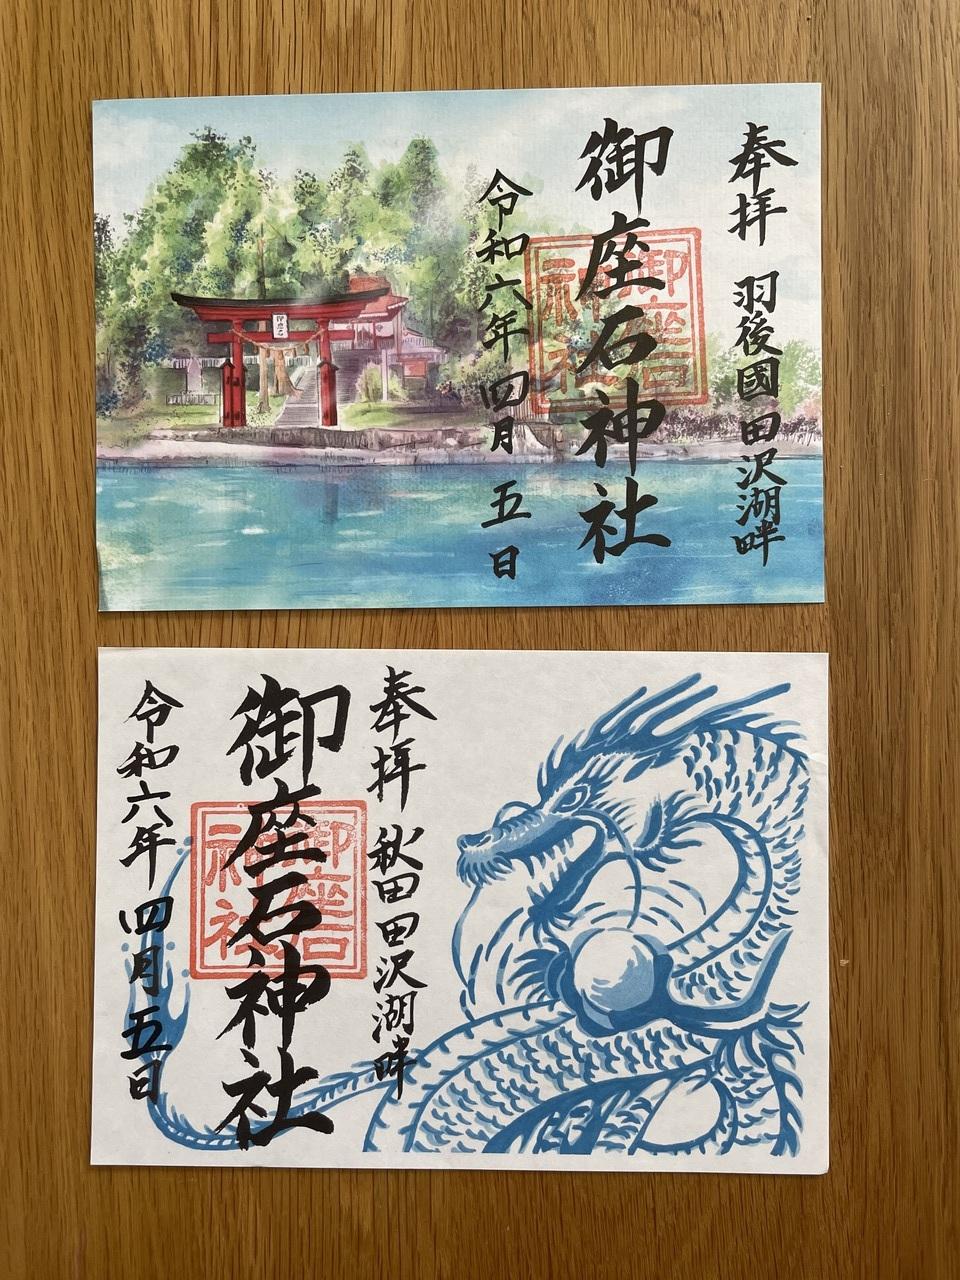 奉拝 羽後國田沢湖畔
御座石神社
御座石神社
令和六年四月五日
御座石
奉拝 秋田田沢湖畔
御座石神社
御座石神社
令和六年四月五日